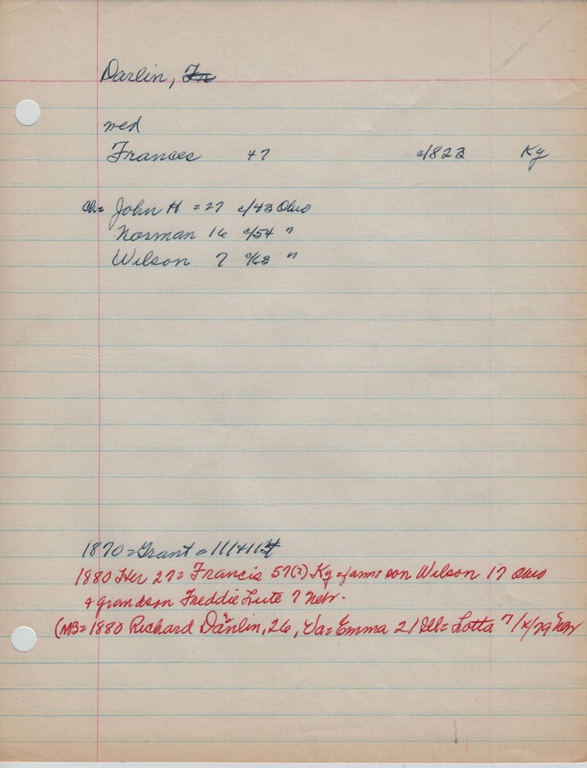 Darlin, Fr
wed
Frances 47 c/1823 Ky
Ch= John H = 27 c/43 Ohio
Norman 16 c/54 "
Wilson 7 c/63 "
1870=Grant=111+113
1880 Her 27= Francis 57(?) Ky = son Wilson 17 Ohio
+ grandson Freddie Lute 7 Nebr.
(MB=1880 Richard Danlin, 26, Va= Emma 21 Ill= Lotta 7/12/79 Nebr